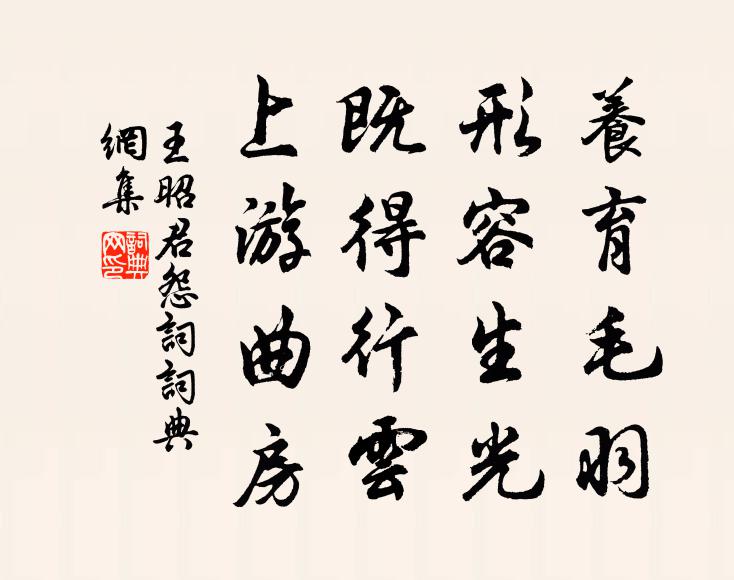 養育毛羽
形容生光
既得行雲
上游曲房
王昭君怨詞詞典
網集
詞典
网印